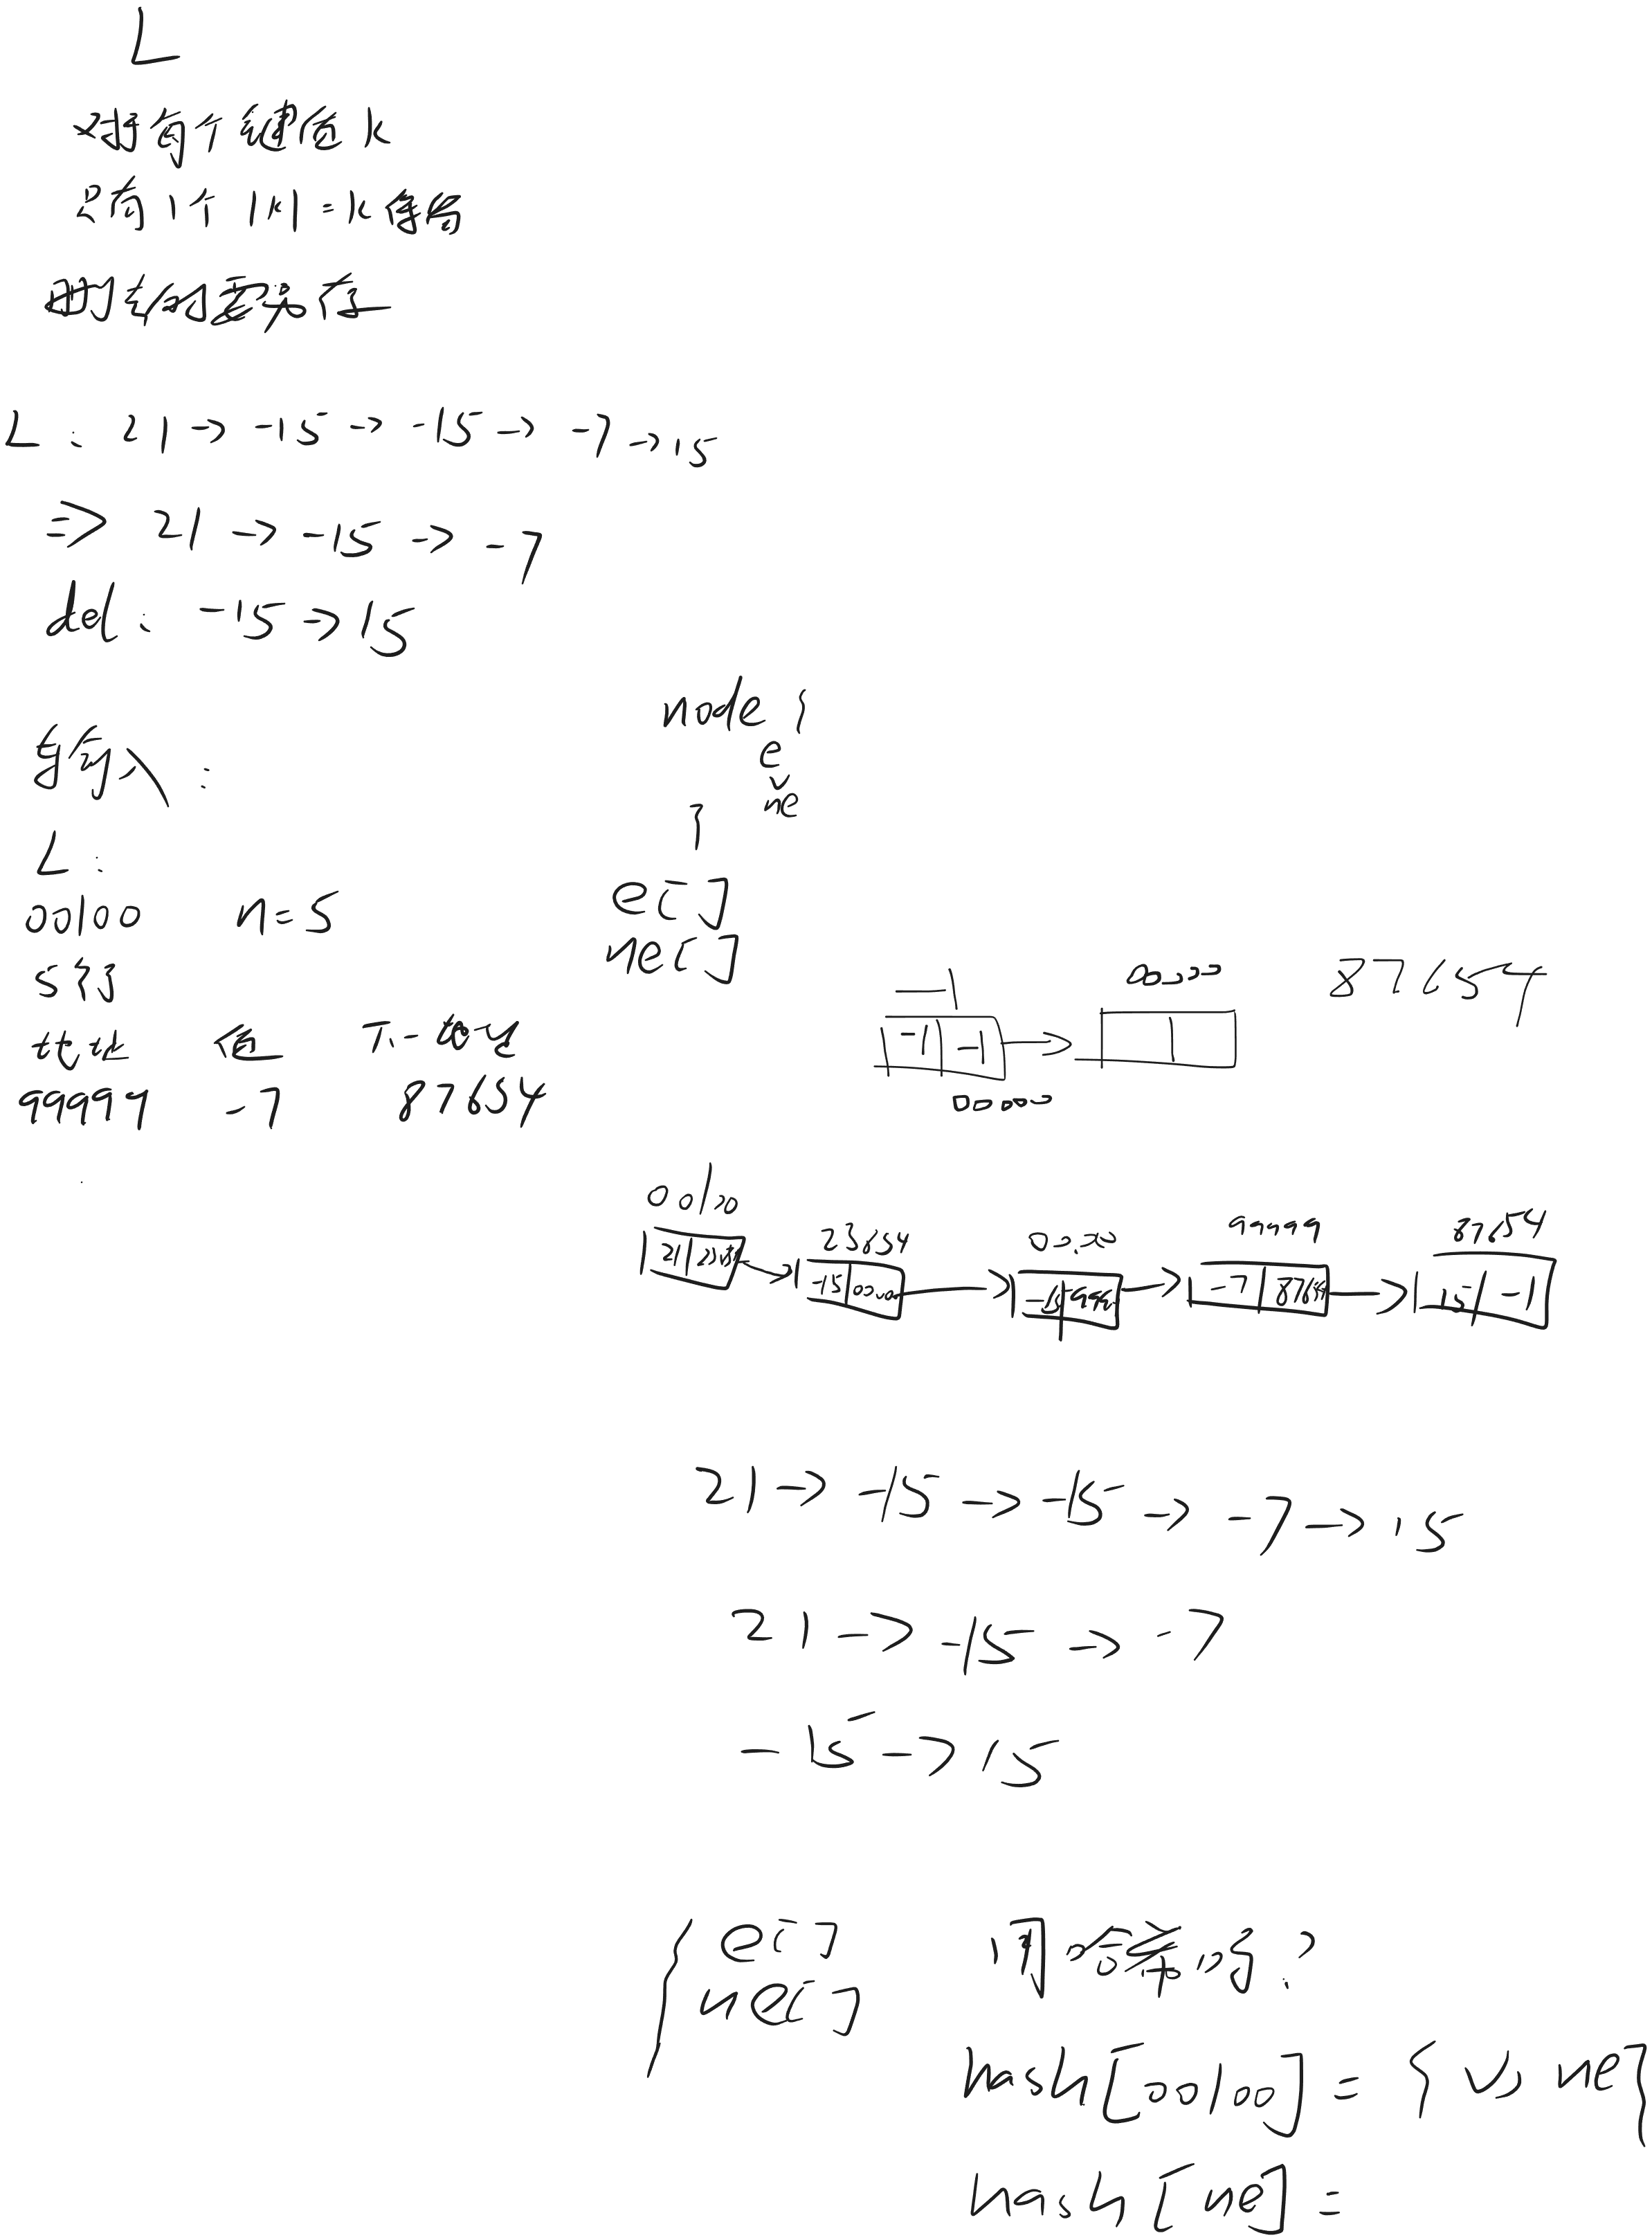 L
对每个键值k
只有1个|k|=k保留
删去的要另存
L: 21→-15→-15→-7→15
⇒ 21→-15→-7
del: -15→15
node {
e
v
ne
}
输入:
L:
00100 n=5
5行
地址 值 下一地址
99999 -7 87654
e[]
ne[]
-1 00000 87654
-1 -1
00000
00100 23854 00000 99999 87654
21 -15 00000 -15 9999 -7 87654 15 -1
21→-15→-15→-7→15
21→-15→-7
-15→15
e[]
ne[]
用哈希吗?
hash[00100] = {v, ne}
hash[ne] =